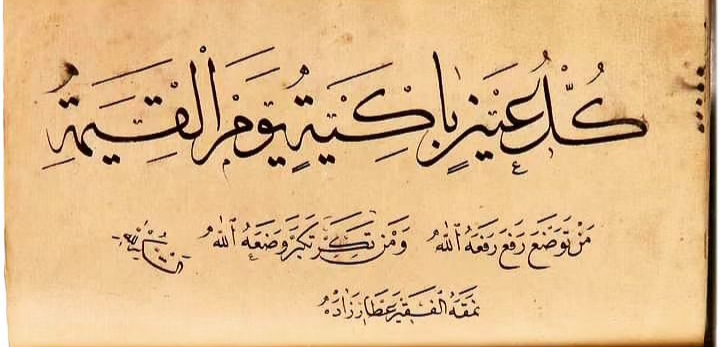 كُلُّ عَيْنٍ بَاكِيَةٍ يَوْمَ الْقِيمَةِ
مَنْ تَوَضَعَ رَفَعَ رَفَعَهُ اللهُ وَمَنْ تَكَبَّرَ تَكَبَّرَ وَضَعَهُ اللهُ
نَمَقَهُ الْفَقِيرُ عَطَّارْزَادَهْ